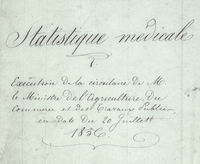 Statistique medicale
Exécution de la circulaire de M
le Ministre de l'agriculture du
Commerce et des travaux Publics
en Date du 20 Juillet
1856